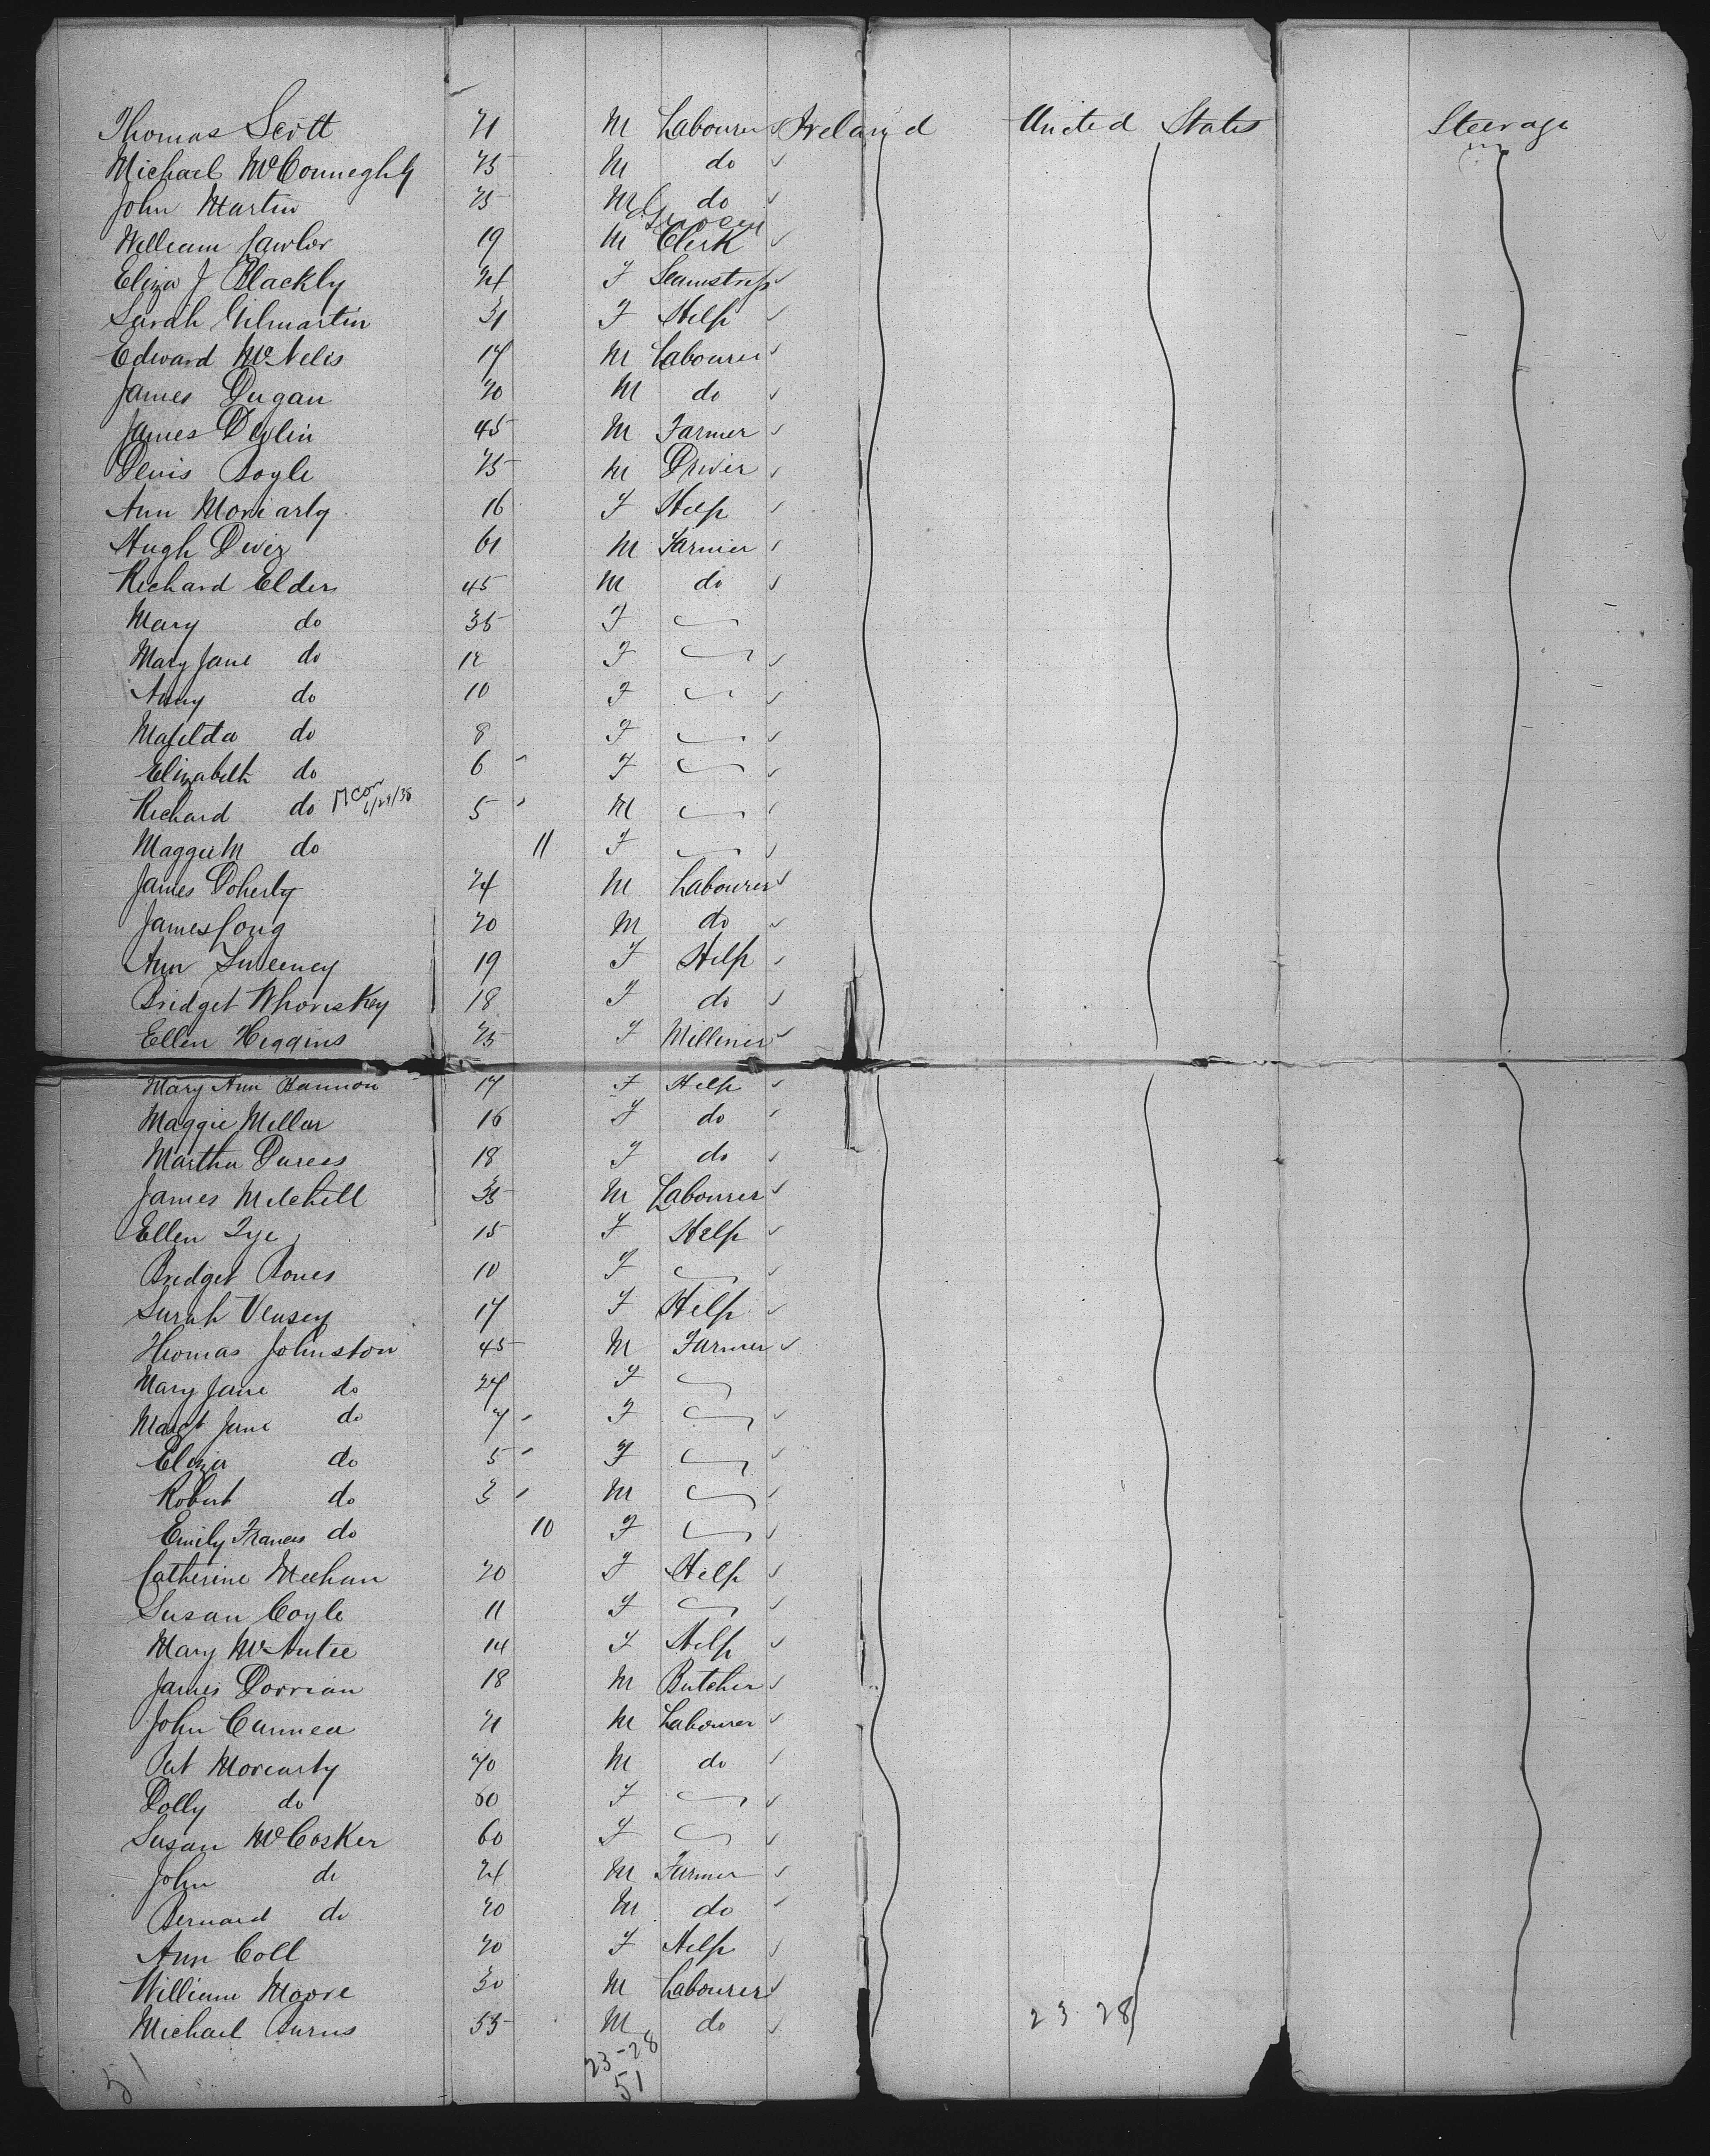 Thomas Scott 21 M Labourer Ireland United States Steerage
Michael McConneghy 25 M do
John Martin 25 M do
Grocers
William Lawlor 19 M Clerk
Eliza J Blackly 24 F Seamstress
Sarah Gilmartin 31 F Help
Edward McNelis 17 M Labourer
James Dugan 20 M do
James Devlin 45 M Farmer
Denis Boyle 25 M Driver
Ann Moriarty 16 F Help
Hugh 61 M Farmer
Richard Elder 45 M do
Mary do 35 F
Mary Jane do 12 F
Amy do 10 F
Matilda do 8 F
Elizabeth do 6 F
Richard do 6/29/38 5 M
Maggie M do 11 F
James Doherty 24 M Labourer
James Long 20 M do
Ann Sweeney 19 F Help
Bridget Whoriskey 18 F do
Ellen Higgins 25 F Milliner
Mary Ann Bannon 17 F Help
Maggie Millar 16 F do
Martha Duress 18 F do
James Mitchell 35 M Labourer
Ellen Tye 15 F Help
Bridget Bones 10 F
Sarah Veasey 17 F Help
Thomas Johnston 45 M Farmer
Mary Jane do 27 F
Margt Jane do 7 F
Eliza do 5 F
Robert do 3 M
Emily Frances do 10 F
Catherine Meehan 20 F Help
Susan Coyle 11 F
Mary McAntee 14 F Help
James Dorrian 18 M Butcher
John 21 M Labourer
Pat Moriarty 70 M do
Dolly do 60 F
Susan McCosker 60 F
John do 24 M Farmer
Bernard do 20 M do
Ann Coll 20 F Help
William Moore 30 M Labourer
Michael Burns 55 M do 23 28
51 23-28
51